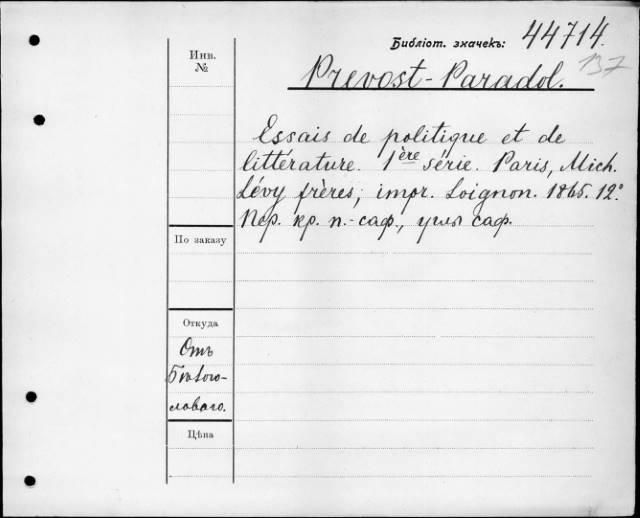 Библіот. значекъ: 44714.
137
Prevost-Paradol.
Инв.
№
Essais de politique et de
littérature. 1ère série. Paris, Mich.
Lévy frères, impr. Loignon. 1865. 12°.
Пер. кр. п.-саф., углы саф.
По заказу
Откуда
Отъ
Цѣна